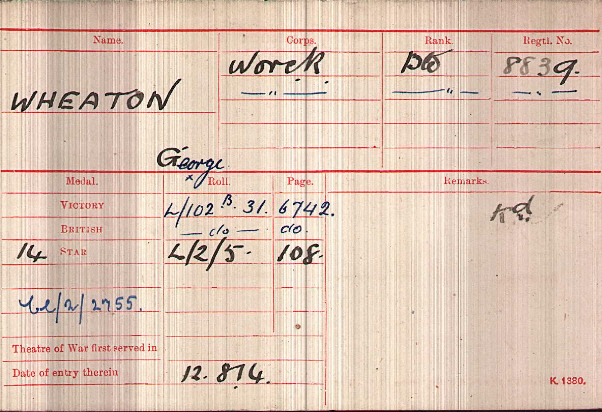 Name. Corps. Rank. Regtl. No.
WHEATON Worck Pte 8839.
—„— —„— —„—
George
Medal. Roll. Page. Remarks
VICTORY L/102 B. 31. 6742.
BRITISH — do — do.
14 STAR L/2/5. 108.
/2/2755.
Theatre of War first served in
Date of entry therein 12.8.14.
K. 1380.